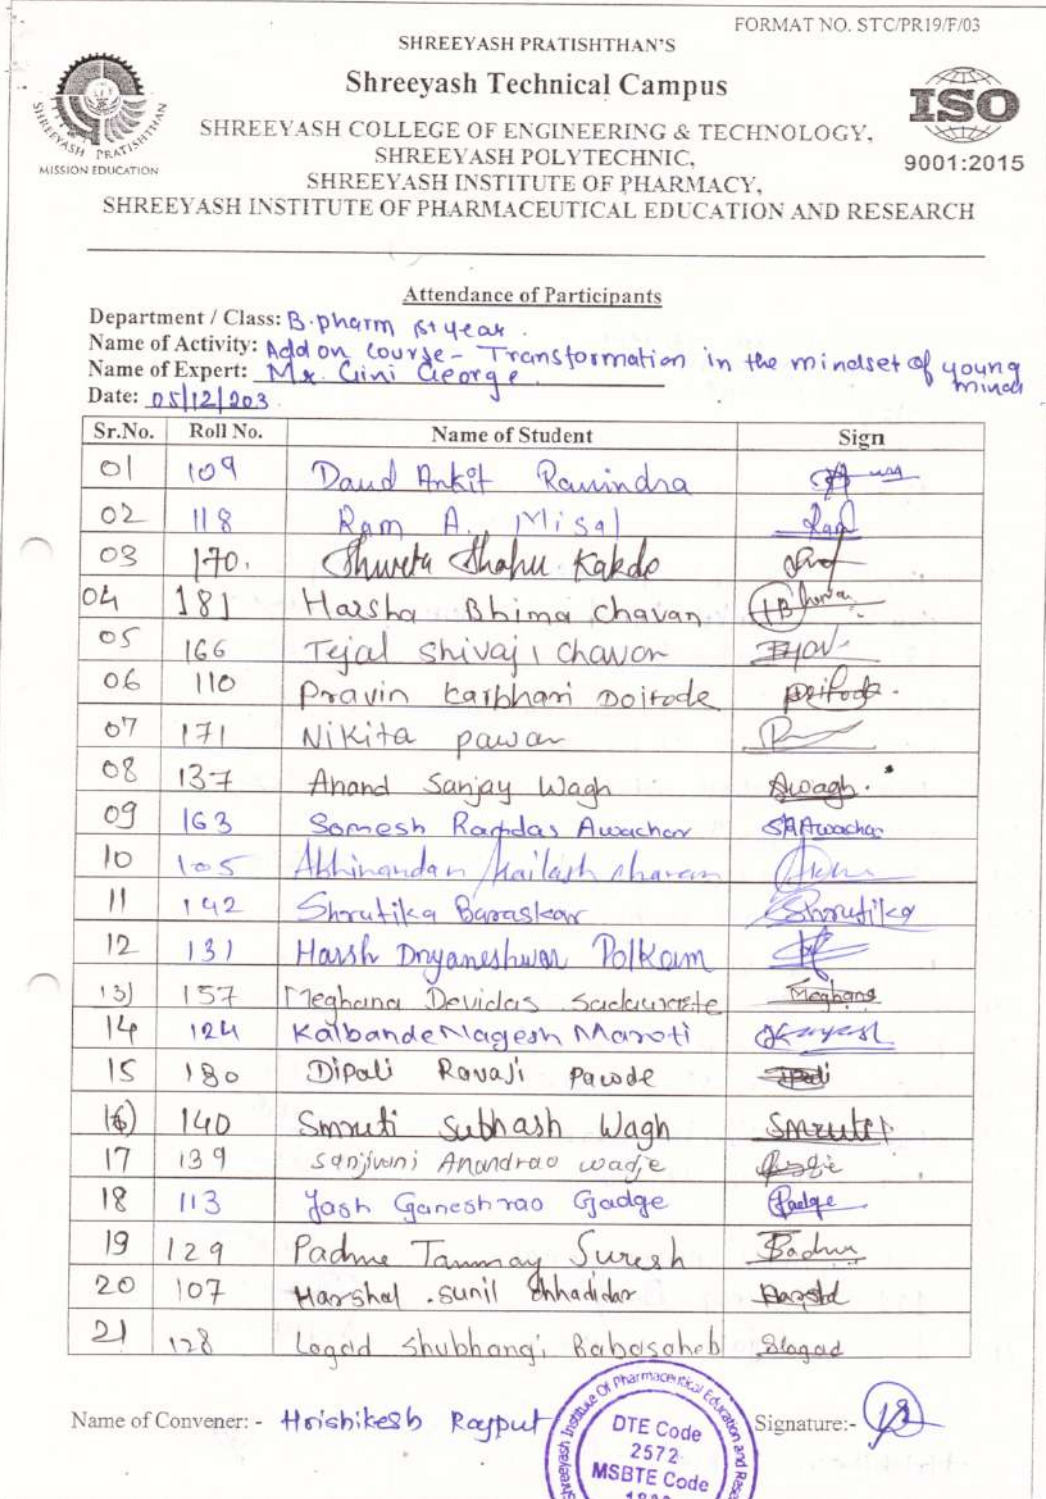 FORMAT NO. STC/PR19/F/03
SHREEYASH PRATISHTHAN'S
Shreeyash Technical Campus
SHREEYASH COLLEGE OF ENGINEERING & TECHNOLOGY,
SHREEYASH POLYTECHNIC,
SHREEYASH INSTITUTE OF PHARMACY,
SHREEYASH INSTITUTE OF PHARMACEUTICAL EDUCATION AND RESEARCH
SHREEYASH PRATISHTHAN
MISSION EDUCATION
ISO
9001:2015
Attendance of Participants
Department / Class: B.pharm 1st year.
Name of Activity: Add on course - Transformation in the mindset of young mind
Name of Expert: Mr. Gini George.
Date: 05/12/203
Sr.No. Roll No. Name of Student Sign
01 109 Daud Ankit Ravindra
02 118 Ram A. Misal Ram
03 170. Shweta Shahu Kakde
04 181 Harsha Bhima Chavan
05 166 Tejal Shivaji Chavan
06 110 Pravin Karbhari Doifode Doifode.
07 171 Nikita pawar
08 137 Anand Sanjay Wagh Awagh.
09 163 Somesh Ramdas Awachar SRAwachar
10 105 Abhinandan Kailash Chavan
11 142 Shrutika Baraskar Shrutika
12 131 Harsh Dnyaneshwar Polkam
13) 157 Meghana Devidas Sadawarte Meghana
14 124 Kalbande Nagesh Maroti
15 180 Dipali Ravaji Pawde
16) 140 Smruti Subhash Wagh Smruti
17 139 Sanjivani Anandrao wadje
18 113 Yash Ganeshrao Gadge Gadge
19 129 Padme Tanmay Suresh Padme
20 107 Harshal .sunil Chhadidar Harshal
21 128 Lagad Shubhangi Babasaheb Slagad
Name of Convener: - Hrishikesh Rajput
Signature:-
Shreeyash Institute Of Pharmaceutical Education and Rese
DTE Code
2572
MSBTE Code